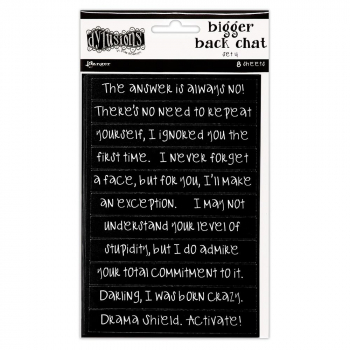 dylusions
bigger
back chat
set 4
Ranger
8 sheets
The answer is always no!
There's no need to repeat
yourself, I ignored you the
first time. I never forget
a face, but for you, I'll make
an exception. I may not
understand your level of
stupidity, but I do admire
your total commitment to it.
Darling, I was born crazy.
Drama Shield. Activate!